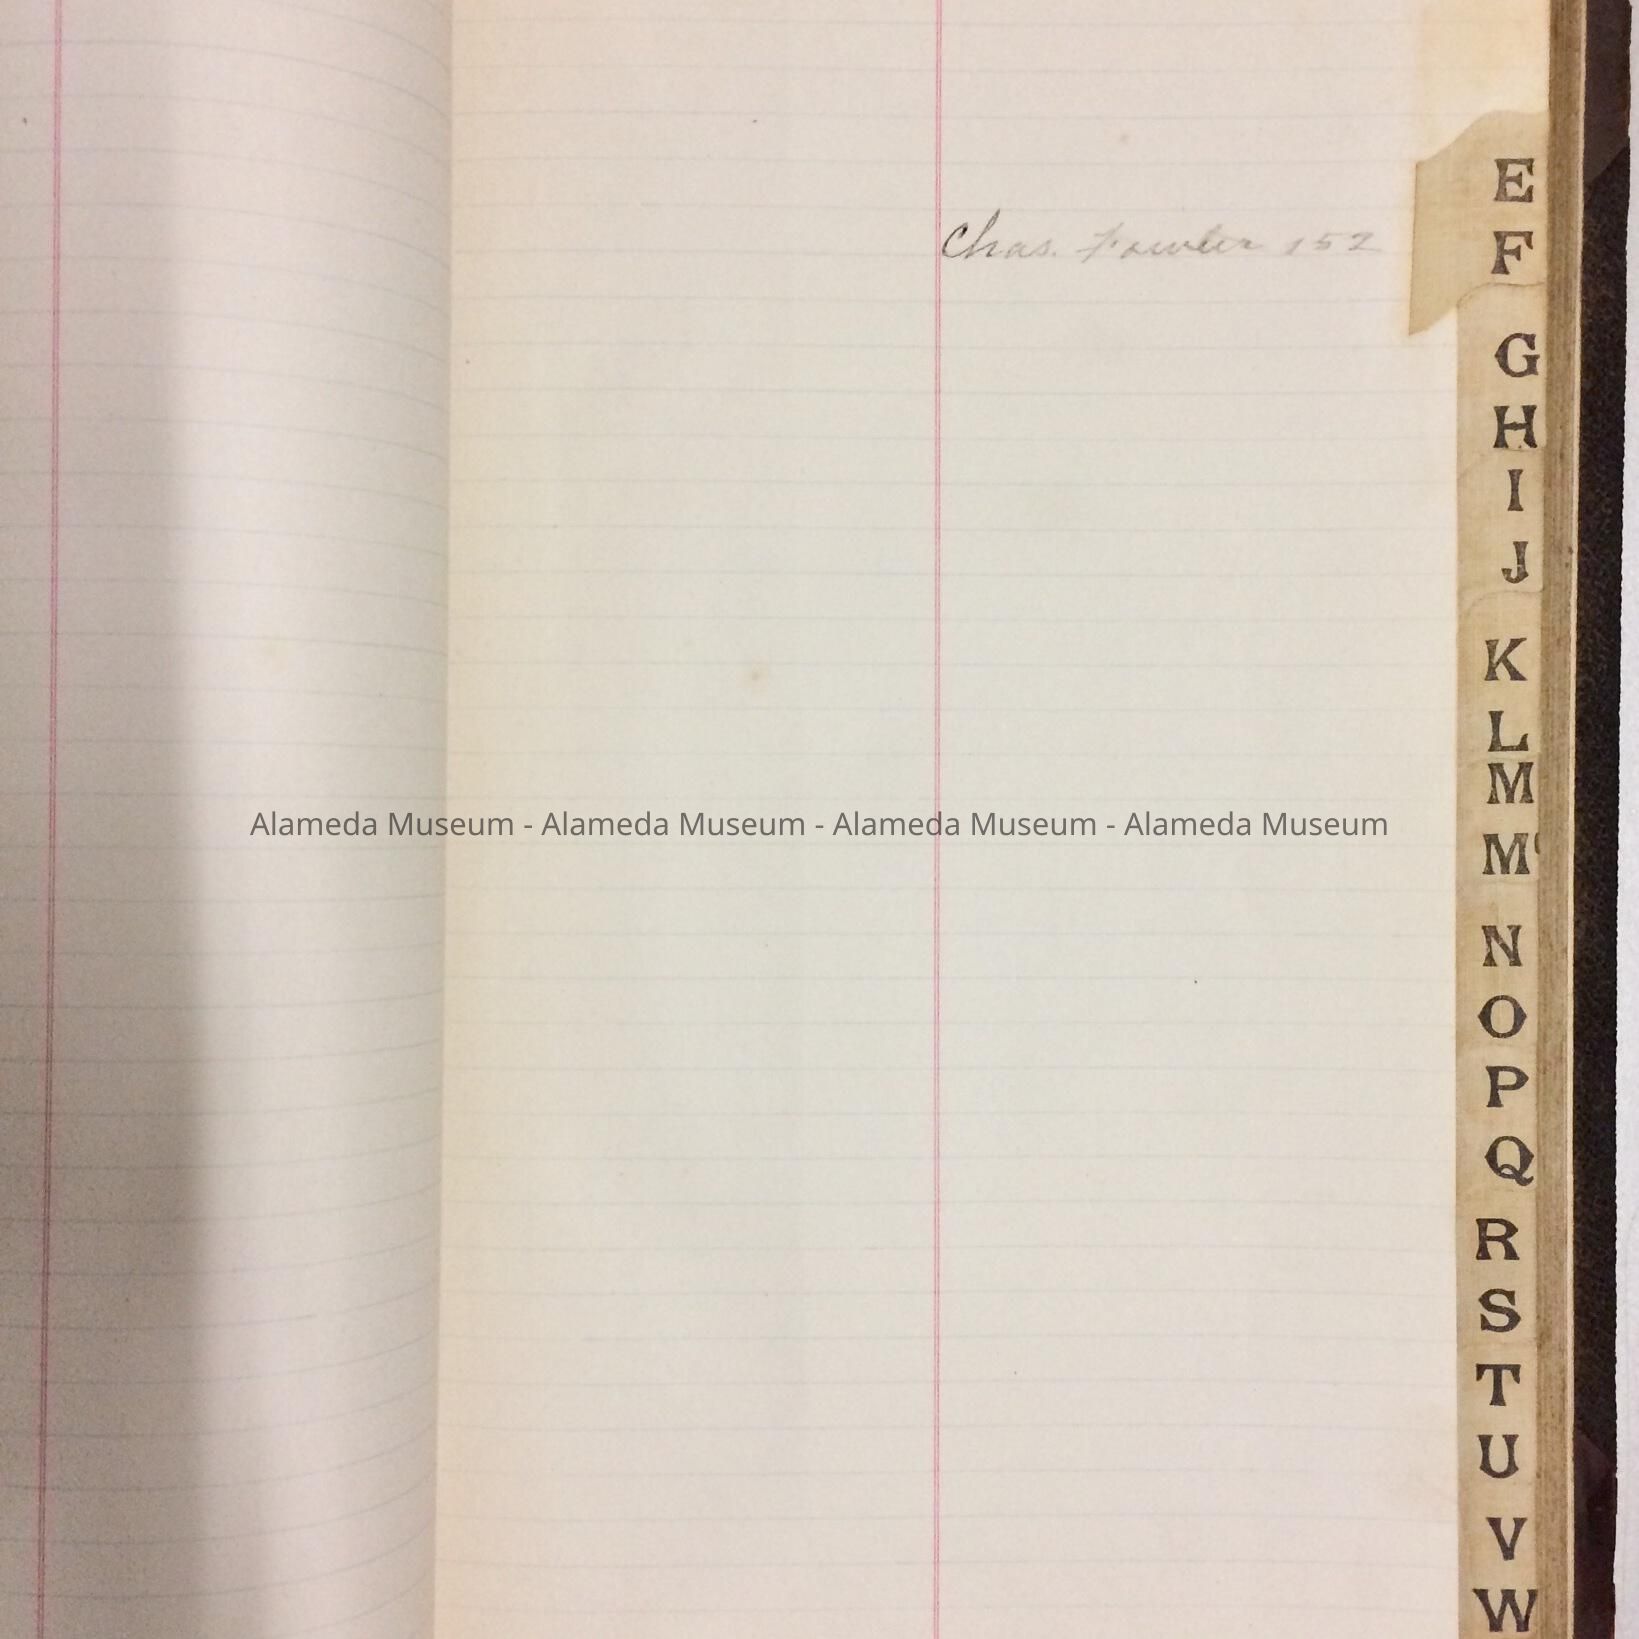 E
Chas. Fowler 152
F
G
H
I
J
K
L
M
Alameda Museum - Alameda Museum - Alameda Museum - Alameda Museum
Mc
N
O
P
Q
R
S
T
U
V
W